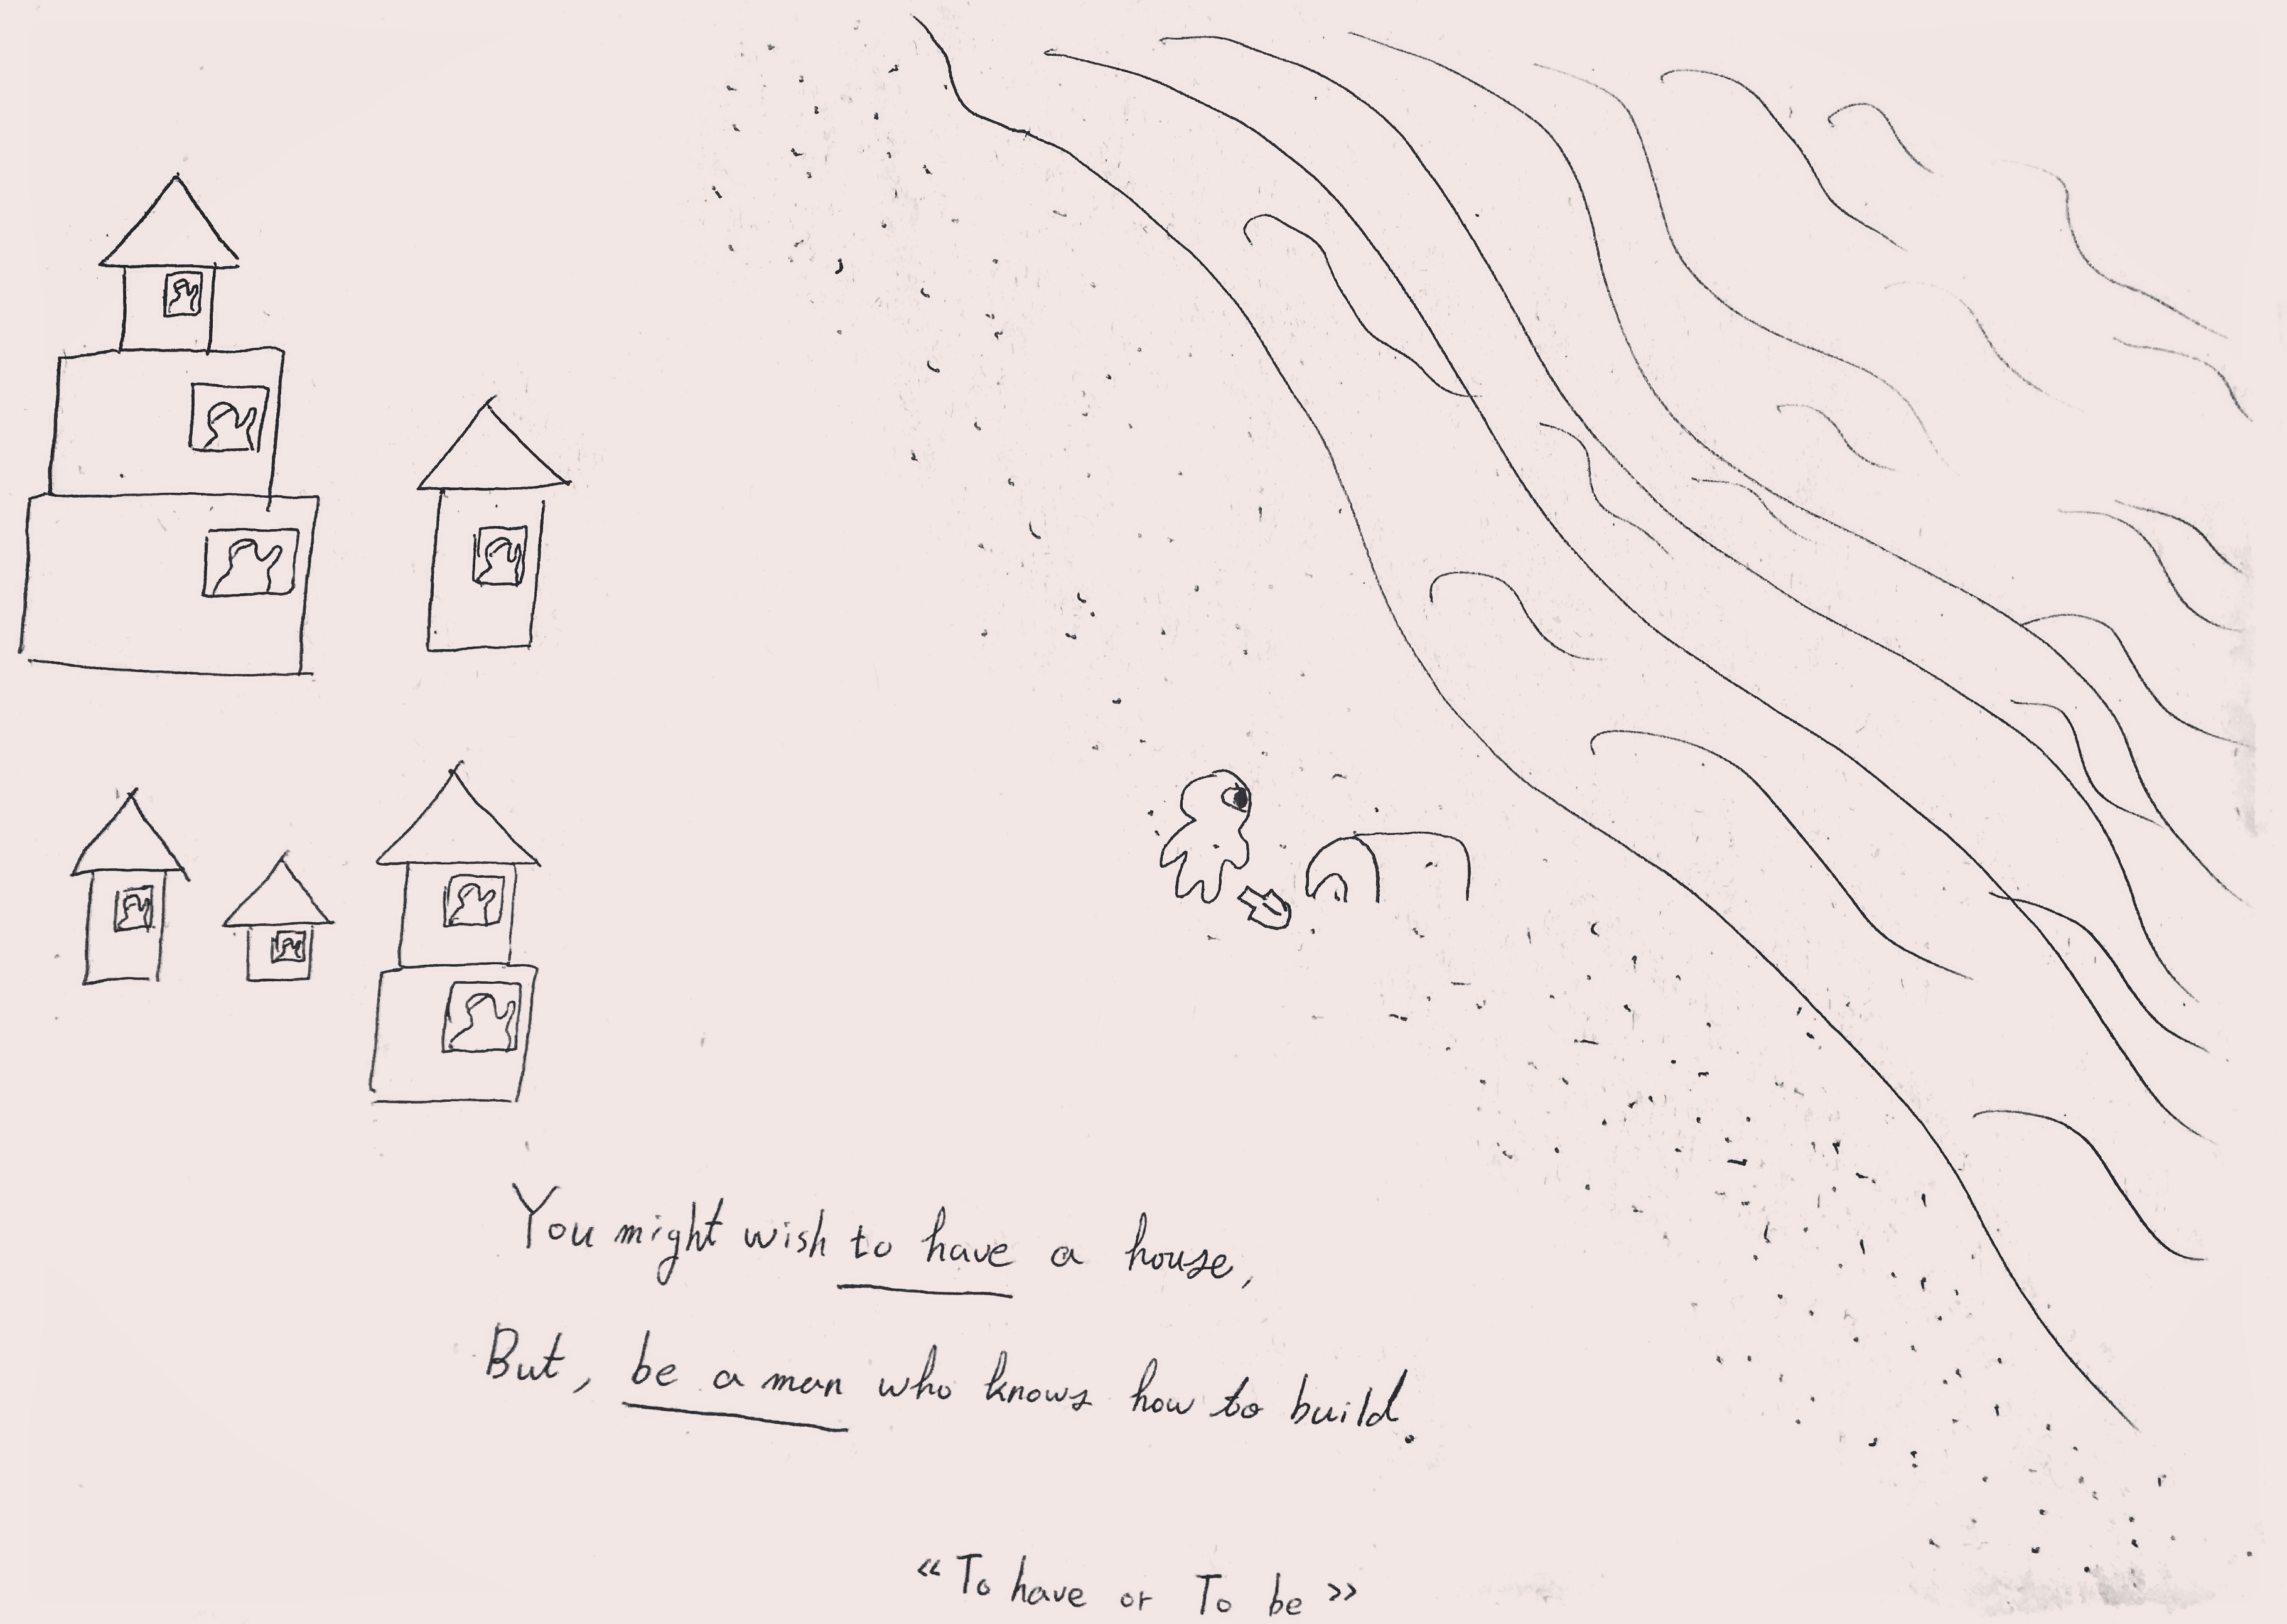 You might wish to have a house,
But, be a man who knows how to build.
« To have or To be »